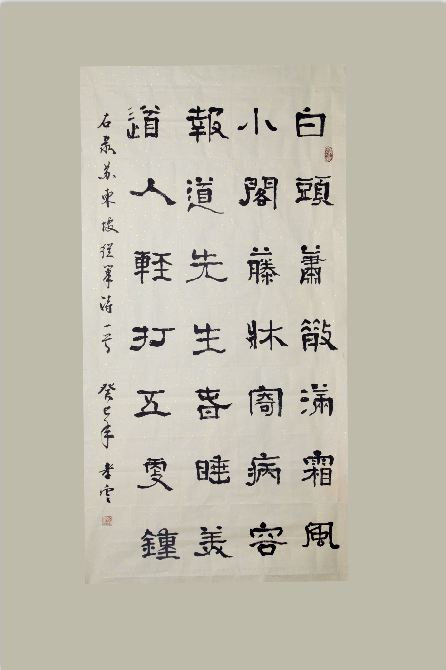 白頭蕭散滿霜風
小閣藤牀寄病容
報道先生春睡美
道人輕打五更鍾
右录苏東坡縱筆诗一首 癸巳年